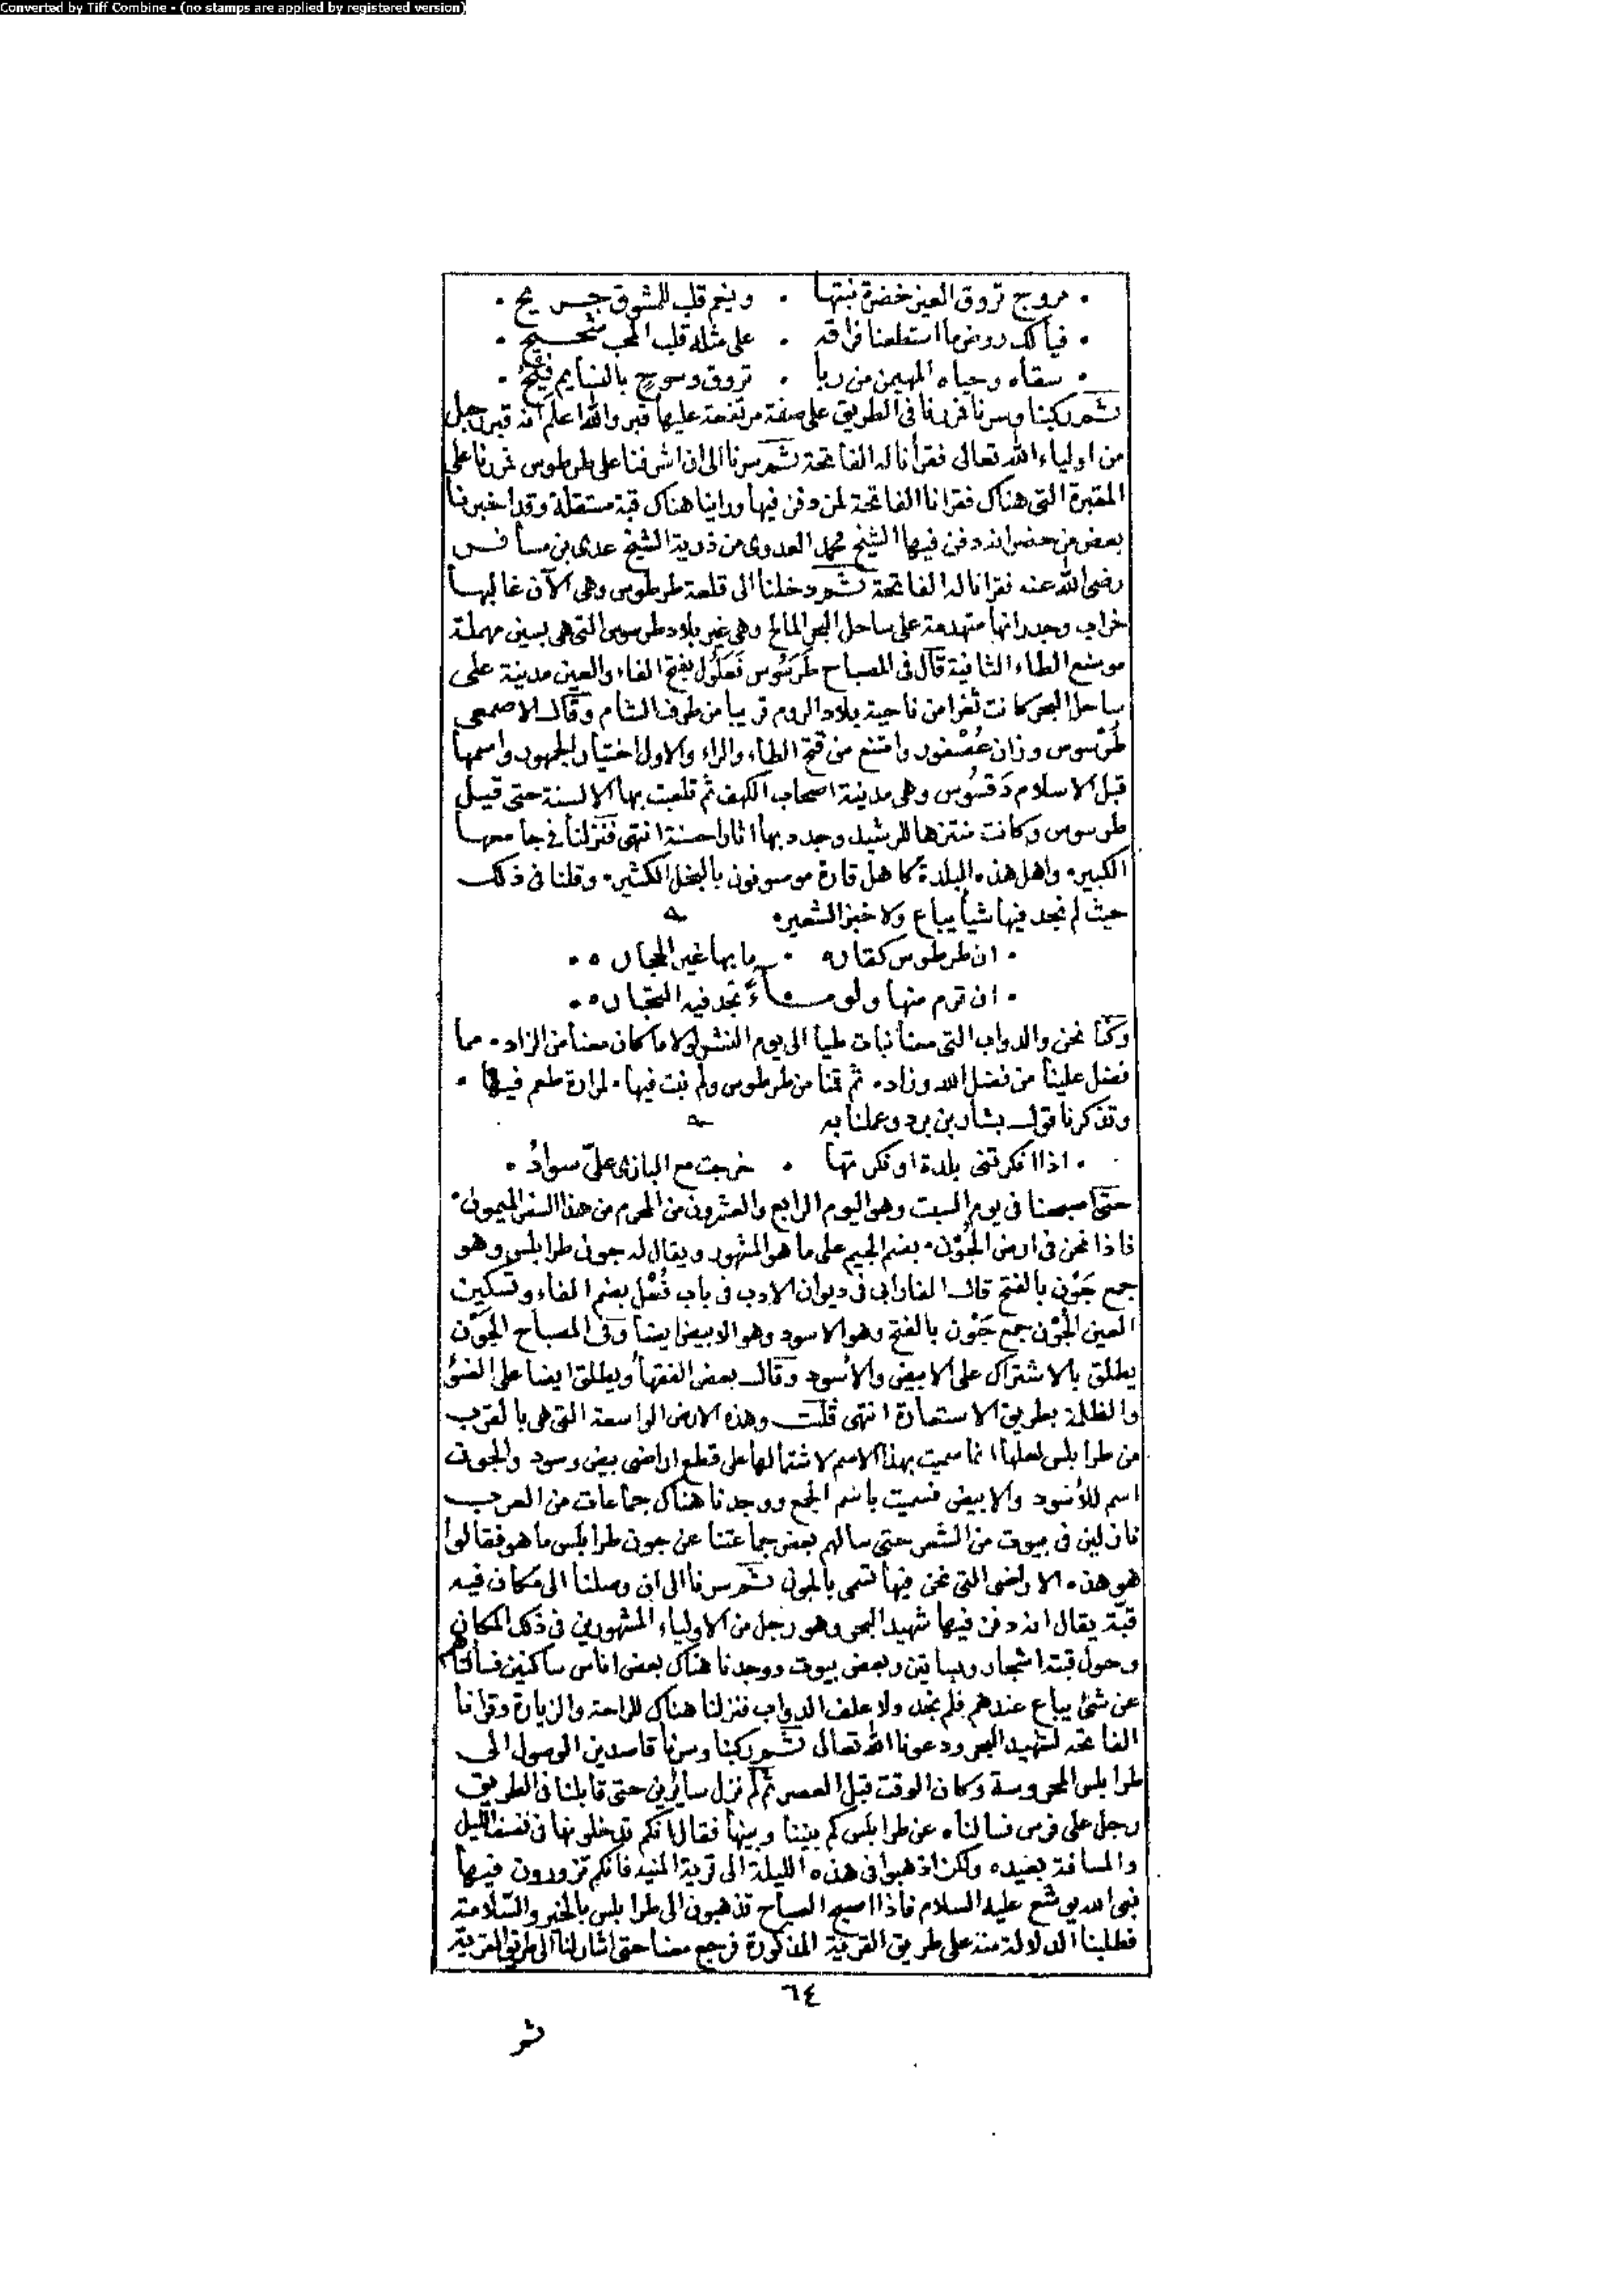 Converted by Tiff Combine - (no stamps are applied by registered version)
• مروج تروق العين خضرة نبتها • وينعم قلب للمشوق جريح •
• فيا لك روض ما استطعنا فراقه • على مثله قلب المحب شحيح •
• سقاه وحياه المهيمن من ربا • تروق وسوح بالنسايم فيح •
ثم ركبنا وسرنا فمررنا فى الطريق على صفة مرتفعة عليها قبر والله اعلم انه قبر رجل
من اولياء الله تعالى فقرأنا له الفاتحة ثم سرنا الى ان اشرفنا على طرطوس فمررنا على
المقبرة التى هناك فقرانا الفاتحة لمن دفن فيها وراينا هناك قبة مستقلة وقد اخبرنا
بعض من حضر انه دفن فيها الشيخ محمد العدوى من ذرية الشيخ عدى بن مسافر
رضى الله عنه فقرانا له الفاتحة ثم دخلنا الى قلعة طرطوس وهى الآن غالبها
خراب وجدرانها متهدمة على ساحل البحر المالح وهى غير بلاد طرسوس التى هى بسين مهملة
موضع الطاء الثانية قال فى المصباح طَرَسُوس فَعَلُول بفتح الفاء والعين مدينة على
ساحل البحر كانت ثغرا من ناحية بلاد الروم قريبا من طرف الشام وقال الاصمعى
طُرْسوس وزان عُصْفور وامتنع من فتح الطاء والراء والاول اختيار الجمهور واسمها
قبل الاسلام دَقسُوس وهى مدينة اصحاب الكهف ثم تلعبت بها الالسنة حتى قيل
طرسوس وكانت منتزها للرشيد وجدد بها اثارا حسنة انتهى فنزلنا فى جامعها
الكبير • واهل هذه البلدة كاهل قارة موسوفون بالبخل الكثير • وقلنا فى ذلك
حيث لم نجد فيها شيأ يباع ولا خبز الشعير •
• ان طرطوس كقاره • ما بها غير الحجاره •
• ان ترم منها ولو ماءً تجد فيه
وكنا نحن والدواب التى معنا نبات طيا الى يوم النشر لولا ما كان معنا من الزاد • مما
فضل علينا من فضل الله وزاد • ثم قمنا من طرطوس ولم نبت فيها • لمرارة طعم فيها •
وتذكرنا قول بشار بن برد وعملنا به
• اذا انكرتنى بلدة او نكرتها • خرجت مع البازى علىّ سوادُ •
حتى اصبحنا فى يوم السبت وهو اليوم الرابع والعشرون من المحرم من هذا السفر الميمون •
فاذا نحن فى ارض الجُوْن • بضم الجيم على ما هو المشهور ويقال له جون طرابلس وهو
جمع جَوْن بالفتح قال الفارابى فى ديوان الادب فى باب فُعْل بضم الفاء وتسكين
العين الجُوْن جمع جَوْن بالفتح وهو الاسود وهو الابيض ايضا وفى المصباح الجَوْن
يطلق بالاشتراك على الابيض والأسود وقال بعض الفقهأ ويطلق ايضا على الضوء
والظلمة بطريق الاستعارة انتهى قلت وهذه الارض الواسعة التى هى بالقرب
من طرابلس لعلها انما سميت بهذا الاسم لاشتمالها على قطع اراضى بيض وسود والجون
اسم للأسود والابيض فسميت باسم الجمع ووجدنا هناك جماعات من العرب
نازلين فى بيوت من الشعر حتى سالهم بعض جماعتنا عن جون طرابلس ما هو فقالوا
هو هذه الاراضى التى نحن فيها تسمى بالجون ثم سرنا الى ان وصلنا الى مكان فيه
قبّة يقال انه دفن فيها شهيد البحر وهو رجل من الاولياء المشهورين فى ذلك المكان
وحول قبته اشجار وبساتين وبعض بيوت ووجدنا هناك بعض اناس ساكنين فسألناهم
عن شئ يباع عندهم فلم نجد ولا علف الدواب فنزلنا هناك للراحة والزيارة وقرانا
الفاتحة لشهيد البحر ودعونا الله تعالى ثم ركبنا وسرنا قاصدين الوصول الى
طرابلس المحروسة وكان الوقت قبل العصر ثم لم نزل سائرين حتى قابلنا فى الطريق
رجل على فرس فسالناه عن طرابلس كم بيننا وبينها فقال انكم تدخلونها فى نصف الليل
والمسافة بعيده ولكن اذهبوا فى هذه الليلة الى قرية المنيه فانكم تزورون فيها
نبى الله يوشع عليه السلام فاذا اصبح الصباح تذهبون الى طرابلس بالخير والسّلامة
فطلبنا الدلالة منه على طريق القرية المذكورة فرجع معنا حتى اشار لنا الى طريق القرية
٦٤
ثم